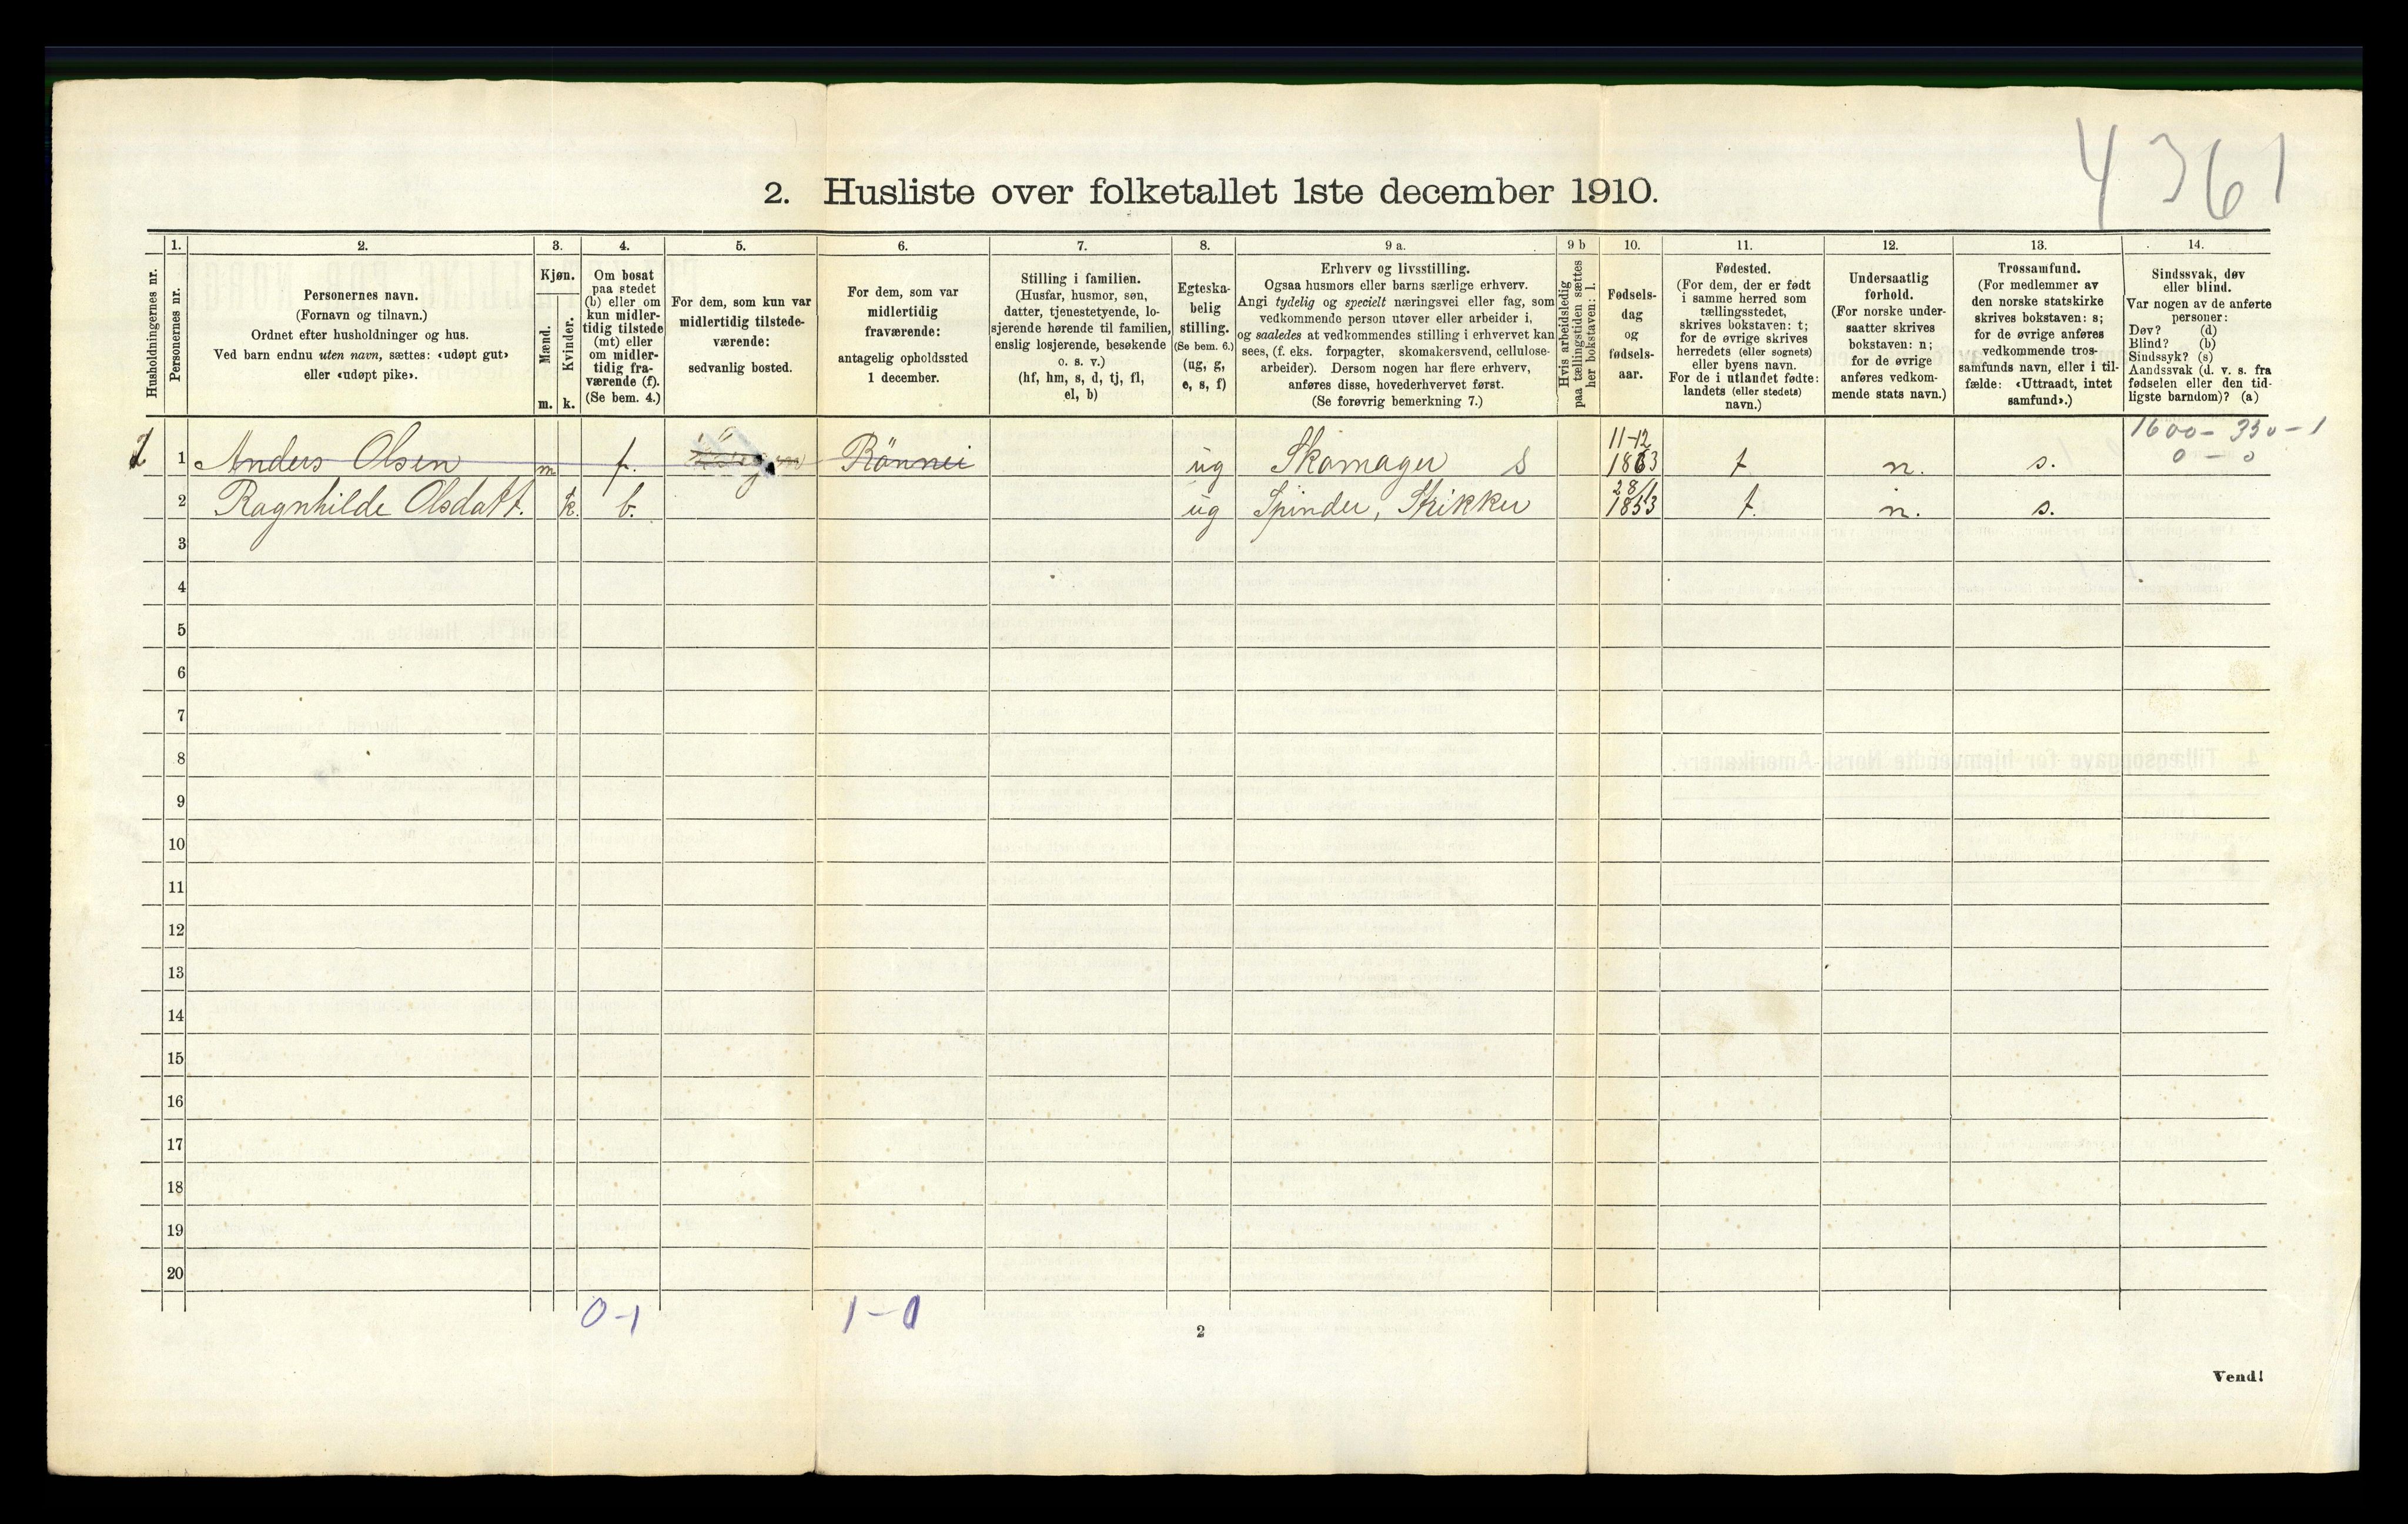 4361
2. Husliste over folketallet 1ste december 1910.
Husholdningernes nr.
1.
Personernes nr.
2.
Personernes navn.
(Fornavn og tilnavn.)
Ordnet efter husholdninger og hus.
Ved barn endnu uten navn, sættes: «udøpt gut»
eller «udøpt pike».
3.
Kjøn.
Mænd.
Kvinder.
m. k.
4.
Om bosat
paa stedet
(b) eller om
kun midler-
tidig tilstede
(mt) eller
om midler-
tidig fra-
værende (f).
(Se bem. 4.)
5.
For dem, som kun var
midlertidig tilstede-
værende:
sedvanlig bosted.
6.
For dem, som var
midlertidig
fraværende:
antagelig opholdssted
1 december.
7.
Stilling i familien.
(Husfar, husmor, søn,
datter, tjenestetyende, lo-
sjerende hørende til familien,
enslig losjerende, besøkende
o. s. v.)
(hf, hm, s, d, tj, fl,
el, b)
8.
Egteska-
belig
stilling.
(Se bem. 6.)
(ug, g,
e, s, f)
9 a.
Erhverv og livsstilling.
Ogsaa husmors eller barns særlige erhverv.
Angi tydelig og specielt næringsvei eller fag, som
vedkommende person utøver eller arbeider i,
og saaledes at vedkommendes stilling i erhvervet kan
sees, (f. eks. forpagter, skomakersvend, cellulose-
arbeider). Dersom nogen har flere erhverv,
anføres disse, hovederhvervet først.
(Se forøvrig bemerkning 7.)
9 b
Hvis arbeidsledig
paa tællingstiden sættes
her bokstaven: l.
10.
Fødsels-
dag
og
fødsels-
aar.
11.
Fødested.
(For dem, der er født
i samme herred som
tællingsstedet,
skrives bokstaven: t;
for de øvrige skrives
herredets (eller sognets)
eller byens navn.
For de i utlandet fødte:
landets (eller stedets)
navn.)
12.
Undersaatlig
forhold.
(For norske under-
saatter skrives
bokstaven: n;
for de øvrige
anføres vedkom-
mende stats navn.)
13.
Trossamfund.
(For medlemmer av
den norske statskirke
skrives bokstaven: s;
for de øvrige anføres
vedkommende tros-
samfunds navn, eller i til-
fælde: «Uttraadt, intet
samfund».)
14.
Sindssvak, døv
eller blind.
Var nogen av de anførte
personer:
Døv? (d)
Blind? (b)
Sindssyk? (s)
Aandssvak (d. v. s. fra
fødselen eller den tid-
ligste barndom)? (a)
1600 - 330 - 1
0 - 0
1 1 Anders Olsen m f. Rønnei ug Skomager S 11-12 1863 t n. s.
2 Ragnhilde Olsdatt. k. b. ug Spinder, Strikker 28/1 1853 t. n. s.
3
4
5
6
7
8
9
10
11
12
13
14
15
16
17
18
19
20
0-1 1-0
2
Vend!